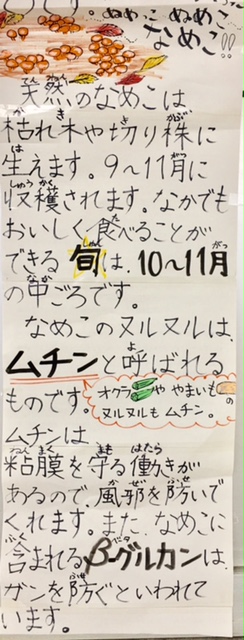 ぬめこ ぬめこ
なめこ!!
天然のなめこは
枯れ木や切り株に
生えます。9～11月に
収穫されます。なかでも
おいしく食べることが
できる 旬は、10～11月
の中ごろです。
なめこのヌルヌルは、
ムチンと呼ばれる
ものです。
オクラや やまいもの
ヌルヌルも ムチン。
ムチンは
粘膜を守る働きが
あるので、風邪を防いで
くれます。また、なめこに
含まれるβ-グルカンは、
ガンを防ぐといわれて
います。